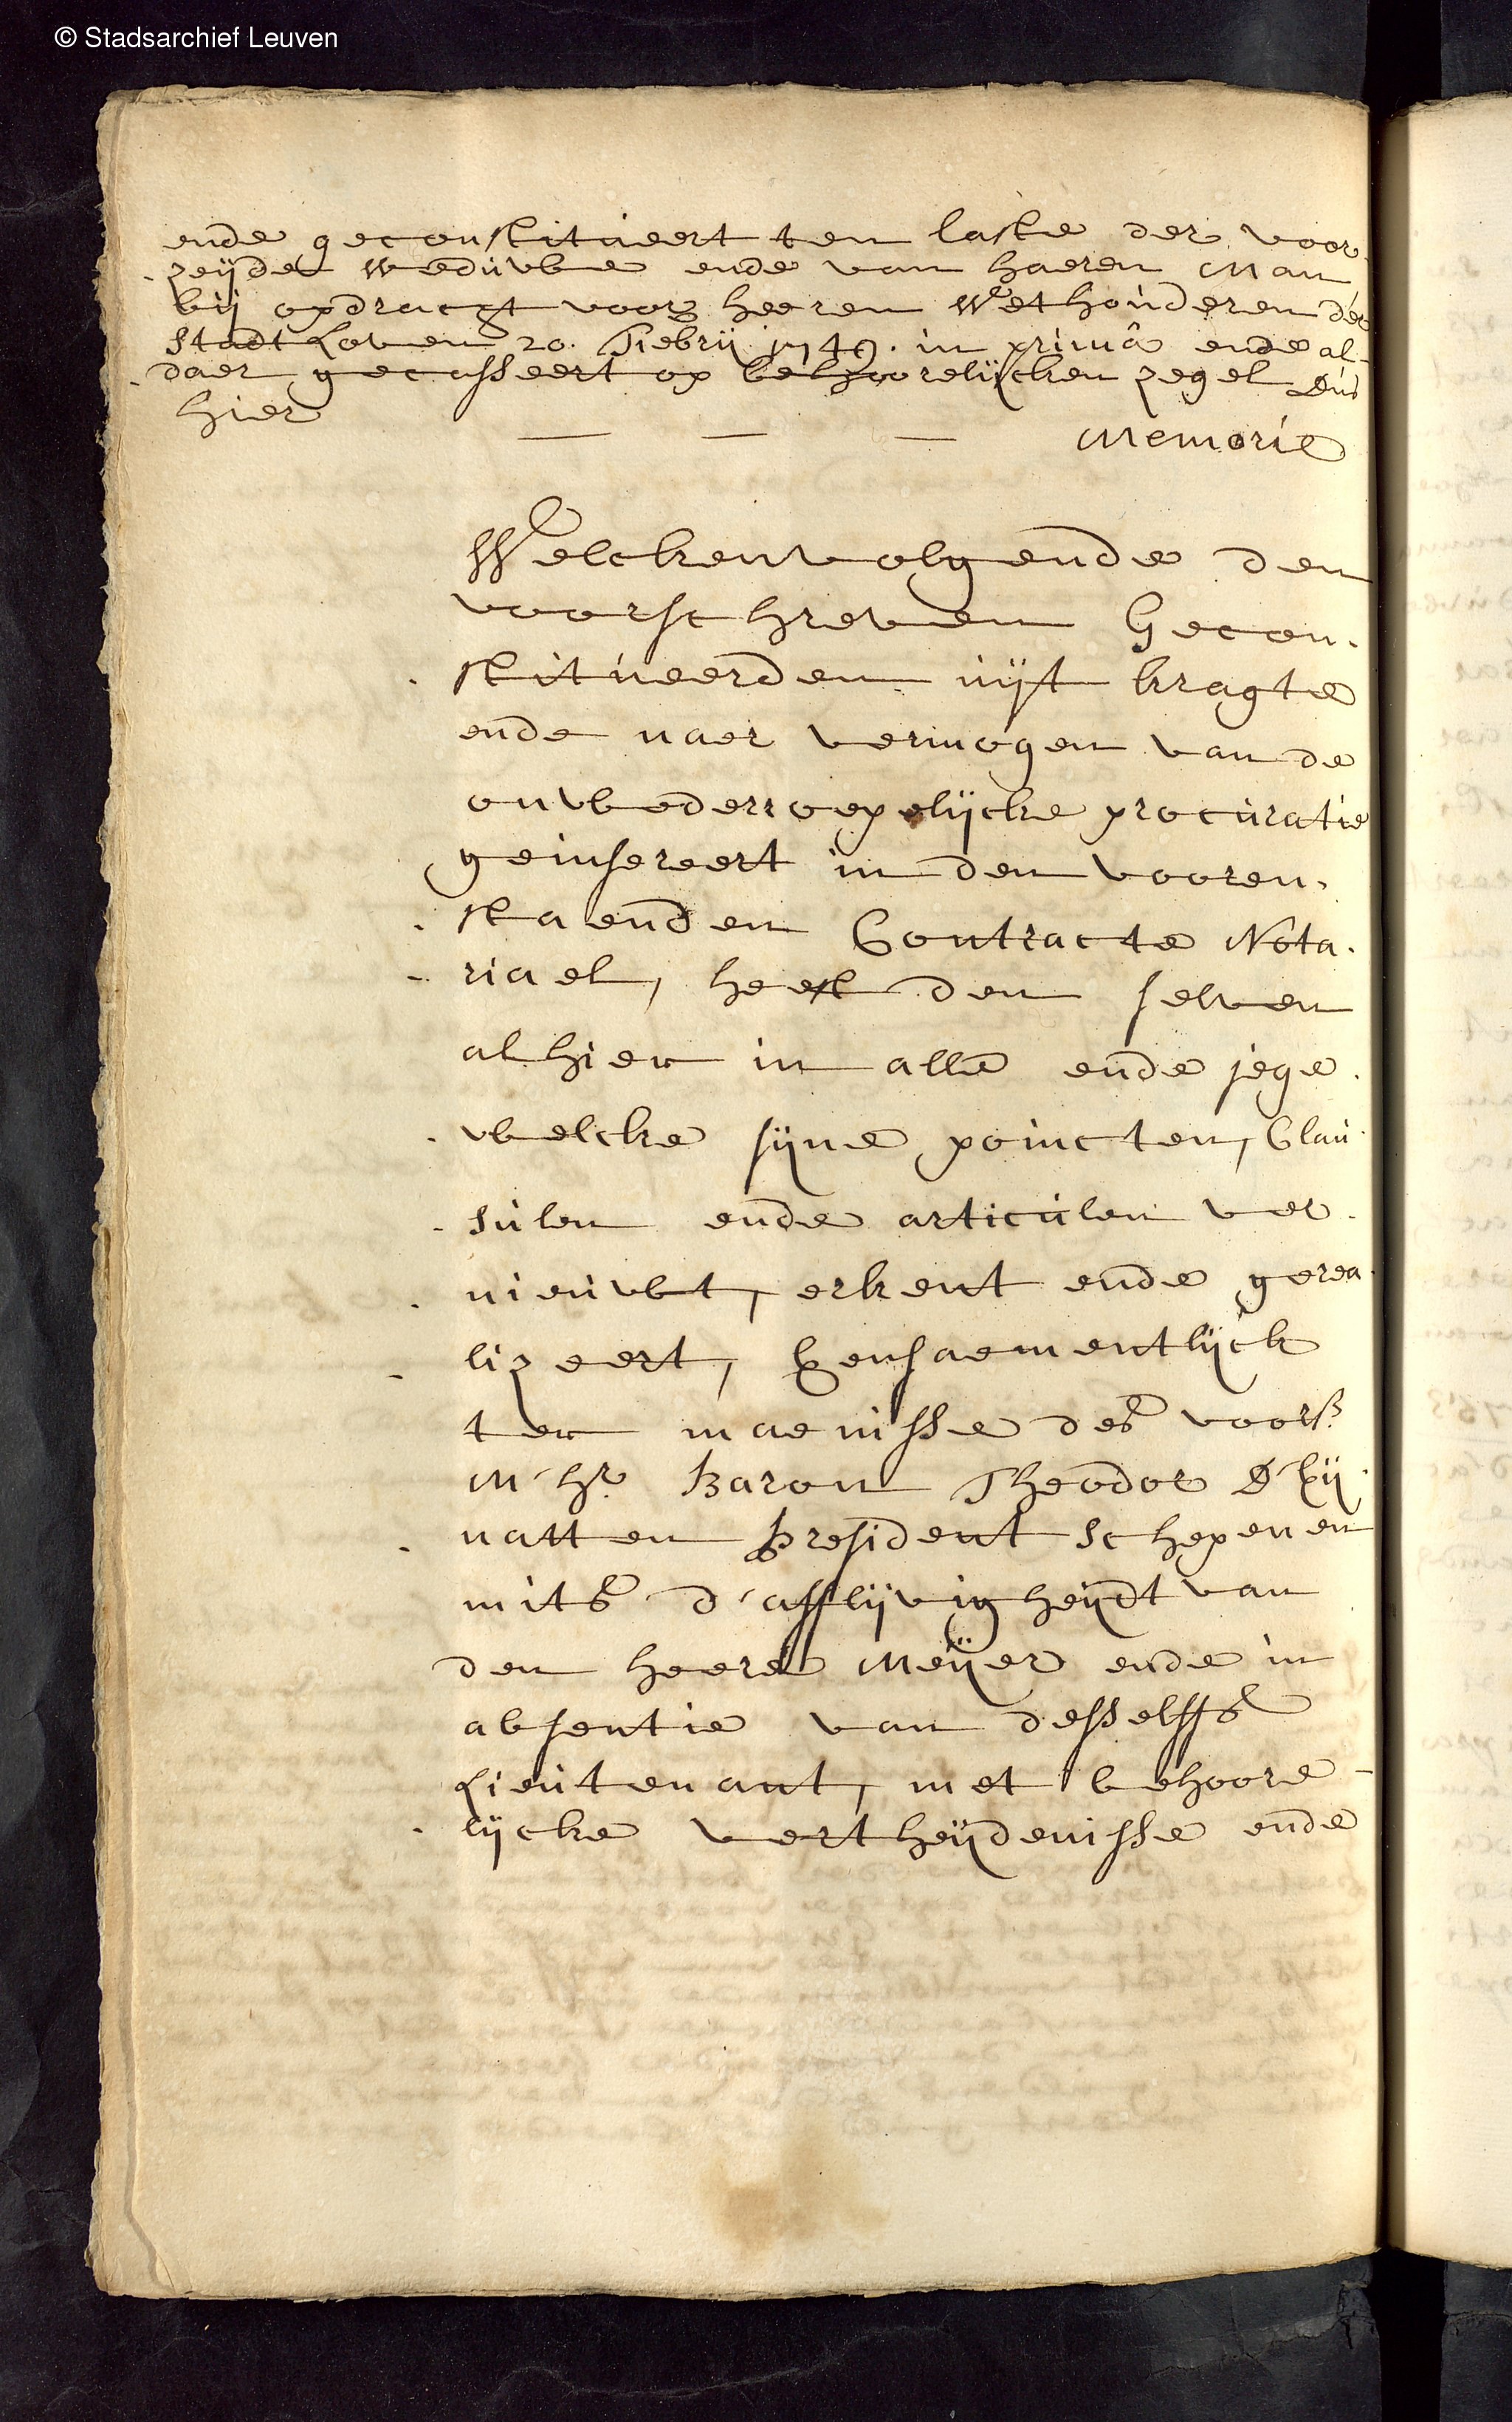 © Stadsarchief Leuven
ende geconstitueert ten laste der voor
zeijde weduwe ende van haeren Man
bij opdracht voor heeren Wethouderen der
Stadt Loven 20. 1749. in primâ ende al-
daer gecasseert op behoorelijcken zegel dus
hier
— — — Memorie
Welckenvolgende den
voorschreven Gecon-
stitueerden uijt kragte
ende naer vermogen van de
onwederroepelijcke procuratie
geinsereert in den vooren-
staenden Contracte Nota-
riael, heeft den selven
alhier in alle ende jege-
welcke sijne poincten, Clau-
sulen ende articulen ver-
nieuwt, erkent ende gerea-
lizeert, Eensaementlijck
ter maenisse des voors.
M'hr. Baron Theodor D'Eij-
natten President Schepenen
mits d'afflijvigheijdt van
den heere Meijer ende in
absentie van desselffs
Lieutenant, met behoore-
lijcke vertheijdenisse ende